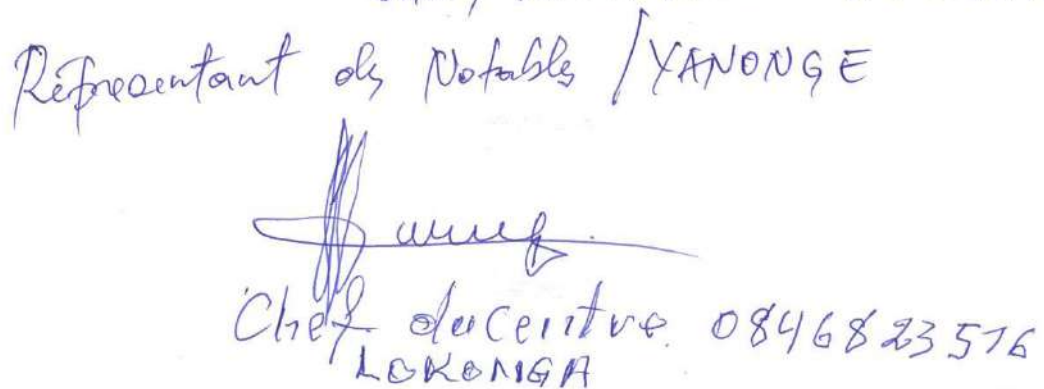 Réprésentant des Notables / YANONGE
Chef du centre 0846823516
LOKONGA